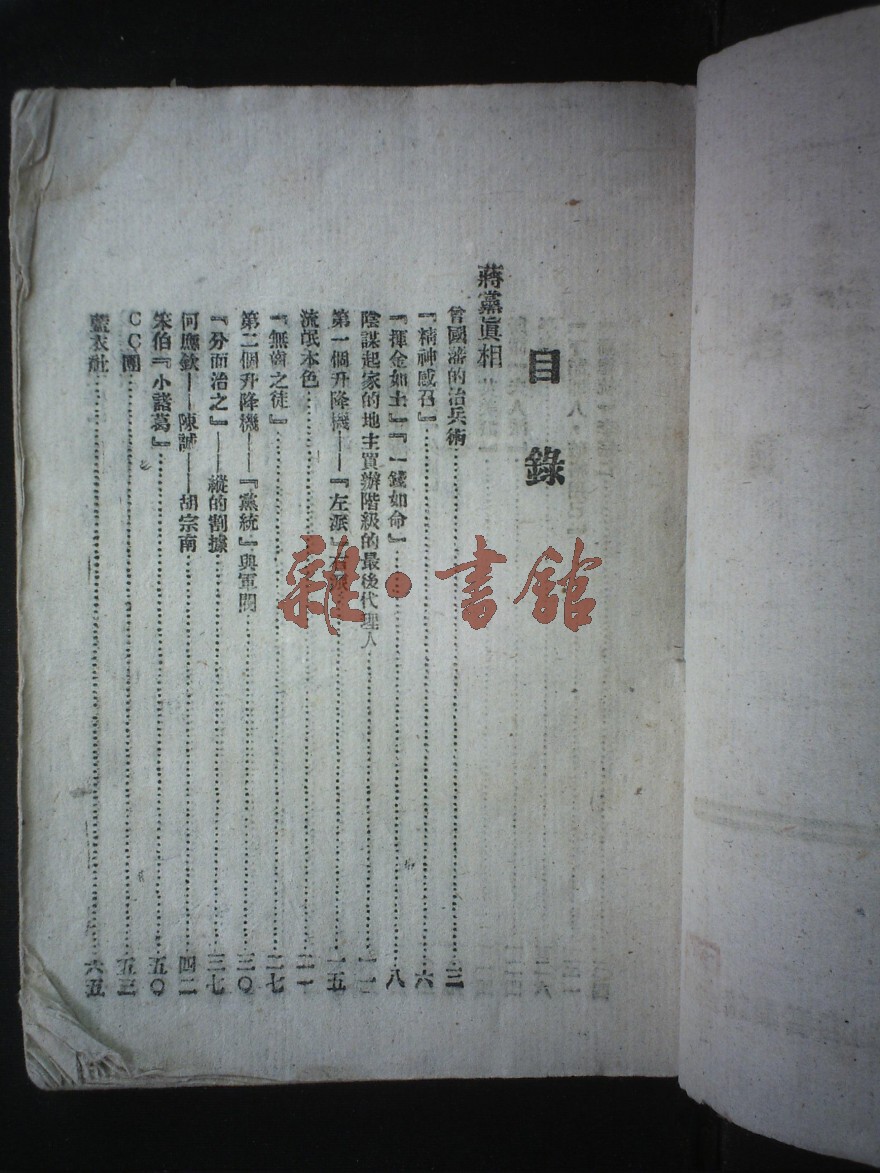 目錄
蔣黨眞相
曾國藩的治兵術………三
『精神感召』………六
『揮金如土』『一錢如命』………八
陰謀起家的地主買辦階級的最後代理人………一一
第一個升降機——『左派』右派………一五
流氓本色………二一
『無齒之徒』………二七
第二個升降機——『黨統』與軍閥………三〇
『分而治之』——縱的割據………三七
何應欽——陳誠——胡宗南………四二
笨伯『小諸葛』………五〇
CC團………五三
藍衣社………六五
雜·書館